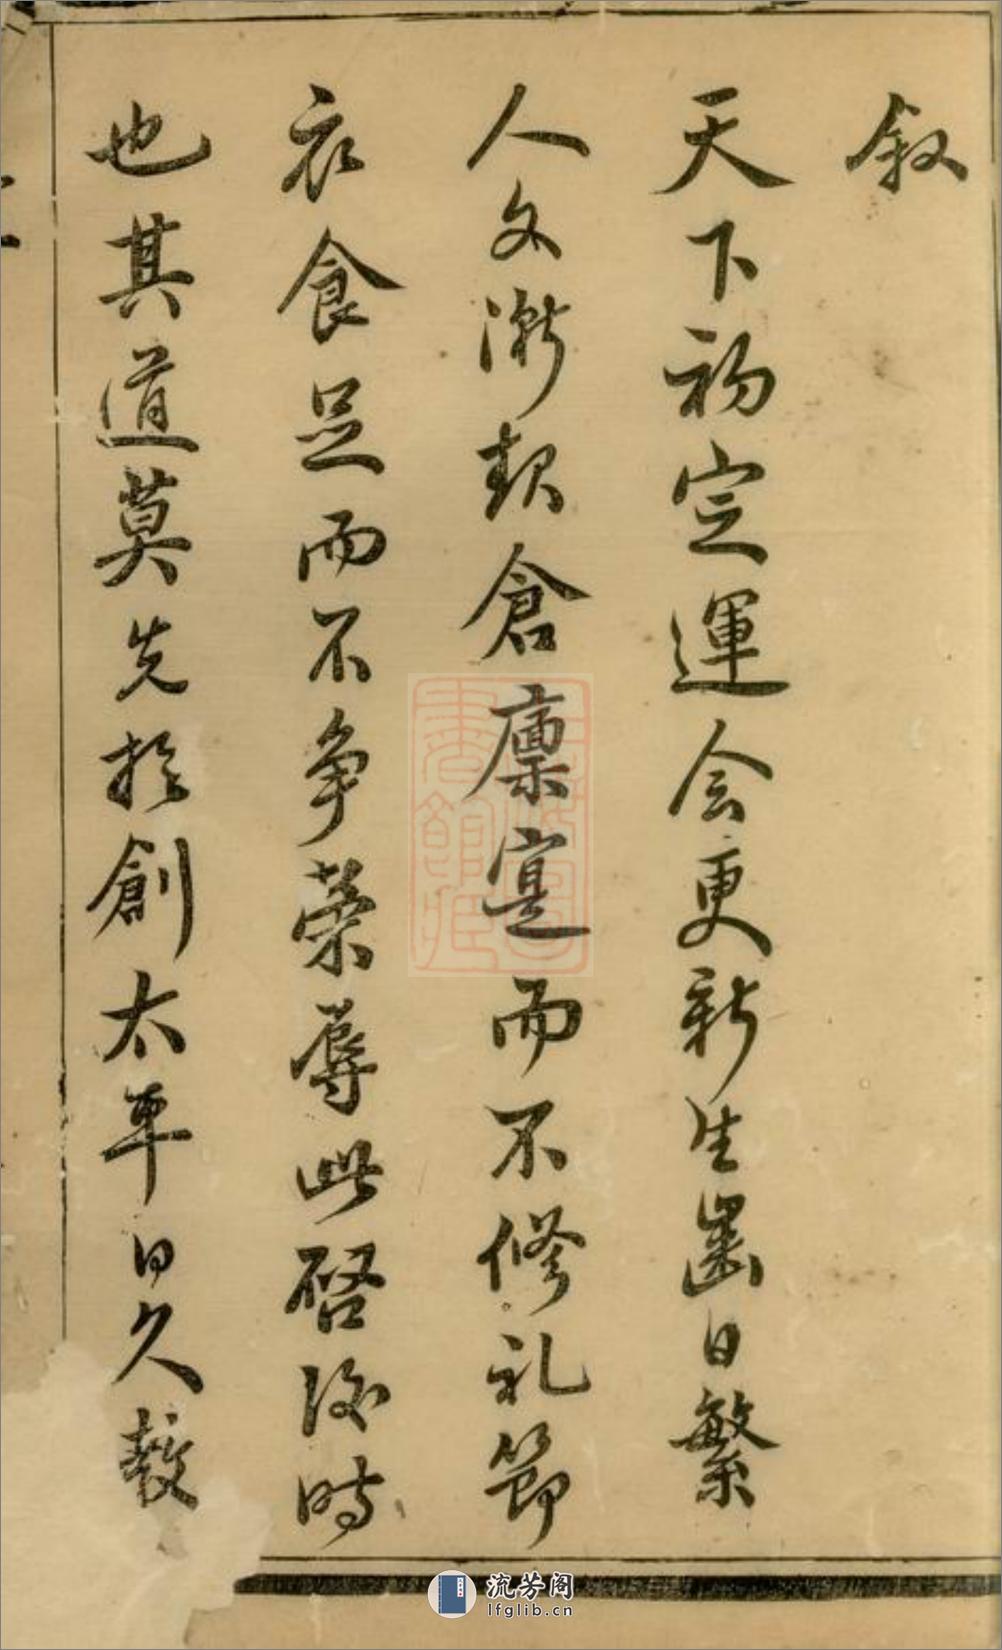 叙
天下初定運会更新生齒日繁
人文漸啟倉廪寔而不修礼節
衣食足而不争榮辱此啓後時
也其道莫先於創太平日久教
流芳阁
lfglib.cn